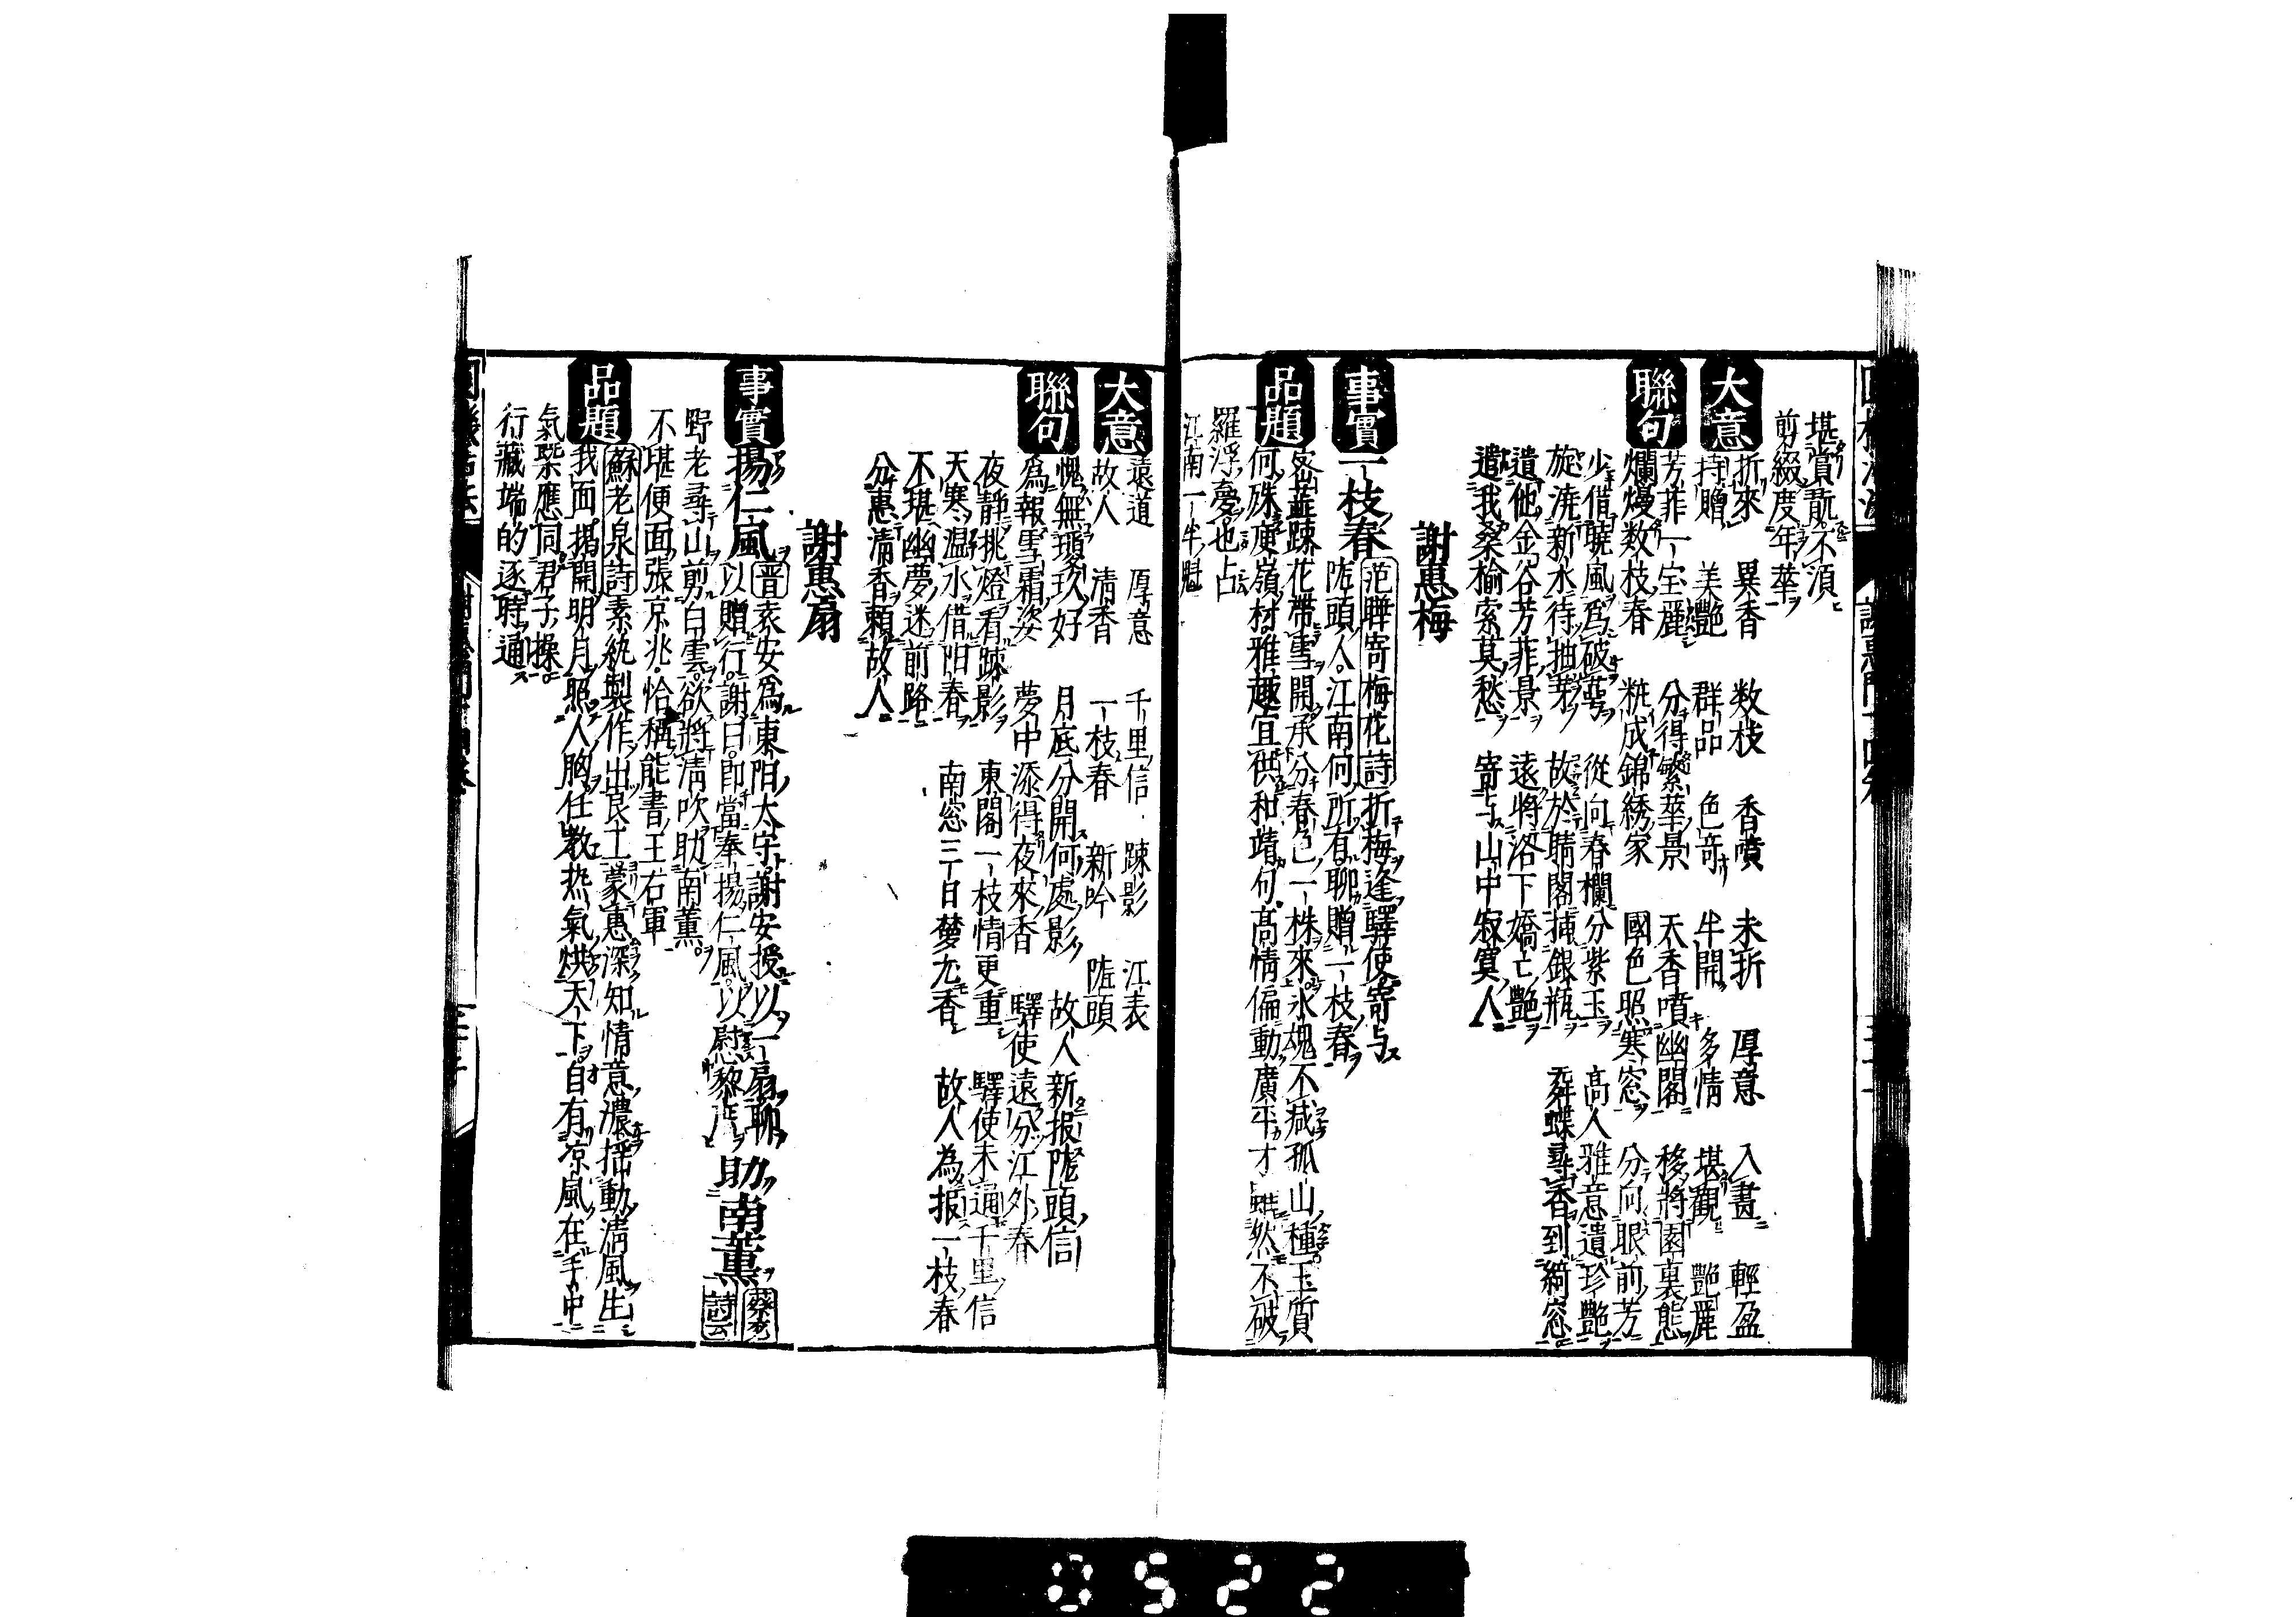 堪賞翫不須
剪綴度年華
大意
折來　異香　数枝　香噴　未折　厚意　入畫　輕盈
持贈　美艷　群品　色奇　半開　多情　堪觀　艷麗
聯句
芳菲一宝麗　分得繁華景　天香噴幽閣　移將園裏態
爛熳数枝春　粧成錦綉家　國色照寒窓　分向眼前芳
少借曉風為破萼　從向春欄分紫玉　高人雅意遺珍艷
旋澆新水待抽芽　故於睛閣挿銀瓶　舜蝶尋香到綺窓
遺他金谷芳菲景　遠將洛下嬌亡艷
遣我桑榆索莫愁　寄与山中寂寞人
謝惠梅
事實
一枝春
范曄寄梅花詩折梅逢驛使寄与
隴頭人江南何所有聊贈一枝春
品題
密蕋踈花帶雪開承分春色一株來氷魂不減孤山種玉質
何殊庾嶺材雅趣宜供和靖句高情偏動廣平才雖然不破
羅浮夢也占
江南一半魁
大意
遠道　厚意　千里信　踈影　江表
故人　清香　一枝春　新吟　隴頭
聯句
愧無瓊玖好　月底分開何處影　故人新报隴頭信
為報雪霜姿　夢中添得夜來香　驛使遠分江外春
夜静挑燈看踈影　東閣一枝情更重　驛使未通千里信
天寒温水借阳春　南窓三日夢尤香　故人為报一枝春
不堪幽夢迷前路
分惠清香賴故人
謝惠扇
事實
揚仁風
晋袁安為東阳太守謝安授以一扇聊
以贈行謝曰即當奉揚仁風以慰黎庶
助南薰
詩云
野老尋山剪白雲欲將清吹助南薰
不堪便面張京兆恰稱能書王右軍
品題
蘇老泉詩素紈製作出良工蒙惠深知情意濃揺動清風生
我面揭開明月照人胸任教热氣烘天下自有凉風在手中
氣槩應同君子操
行藏端的逐時通
0522